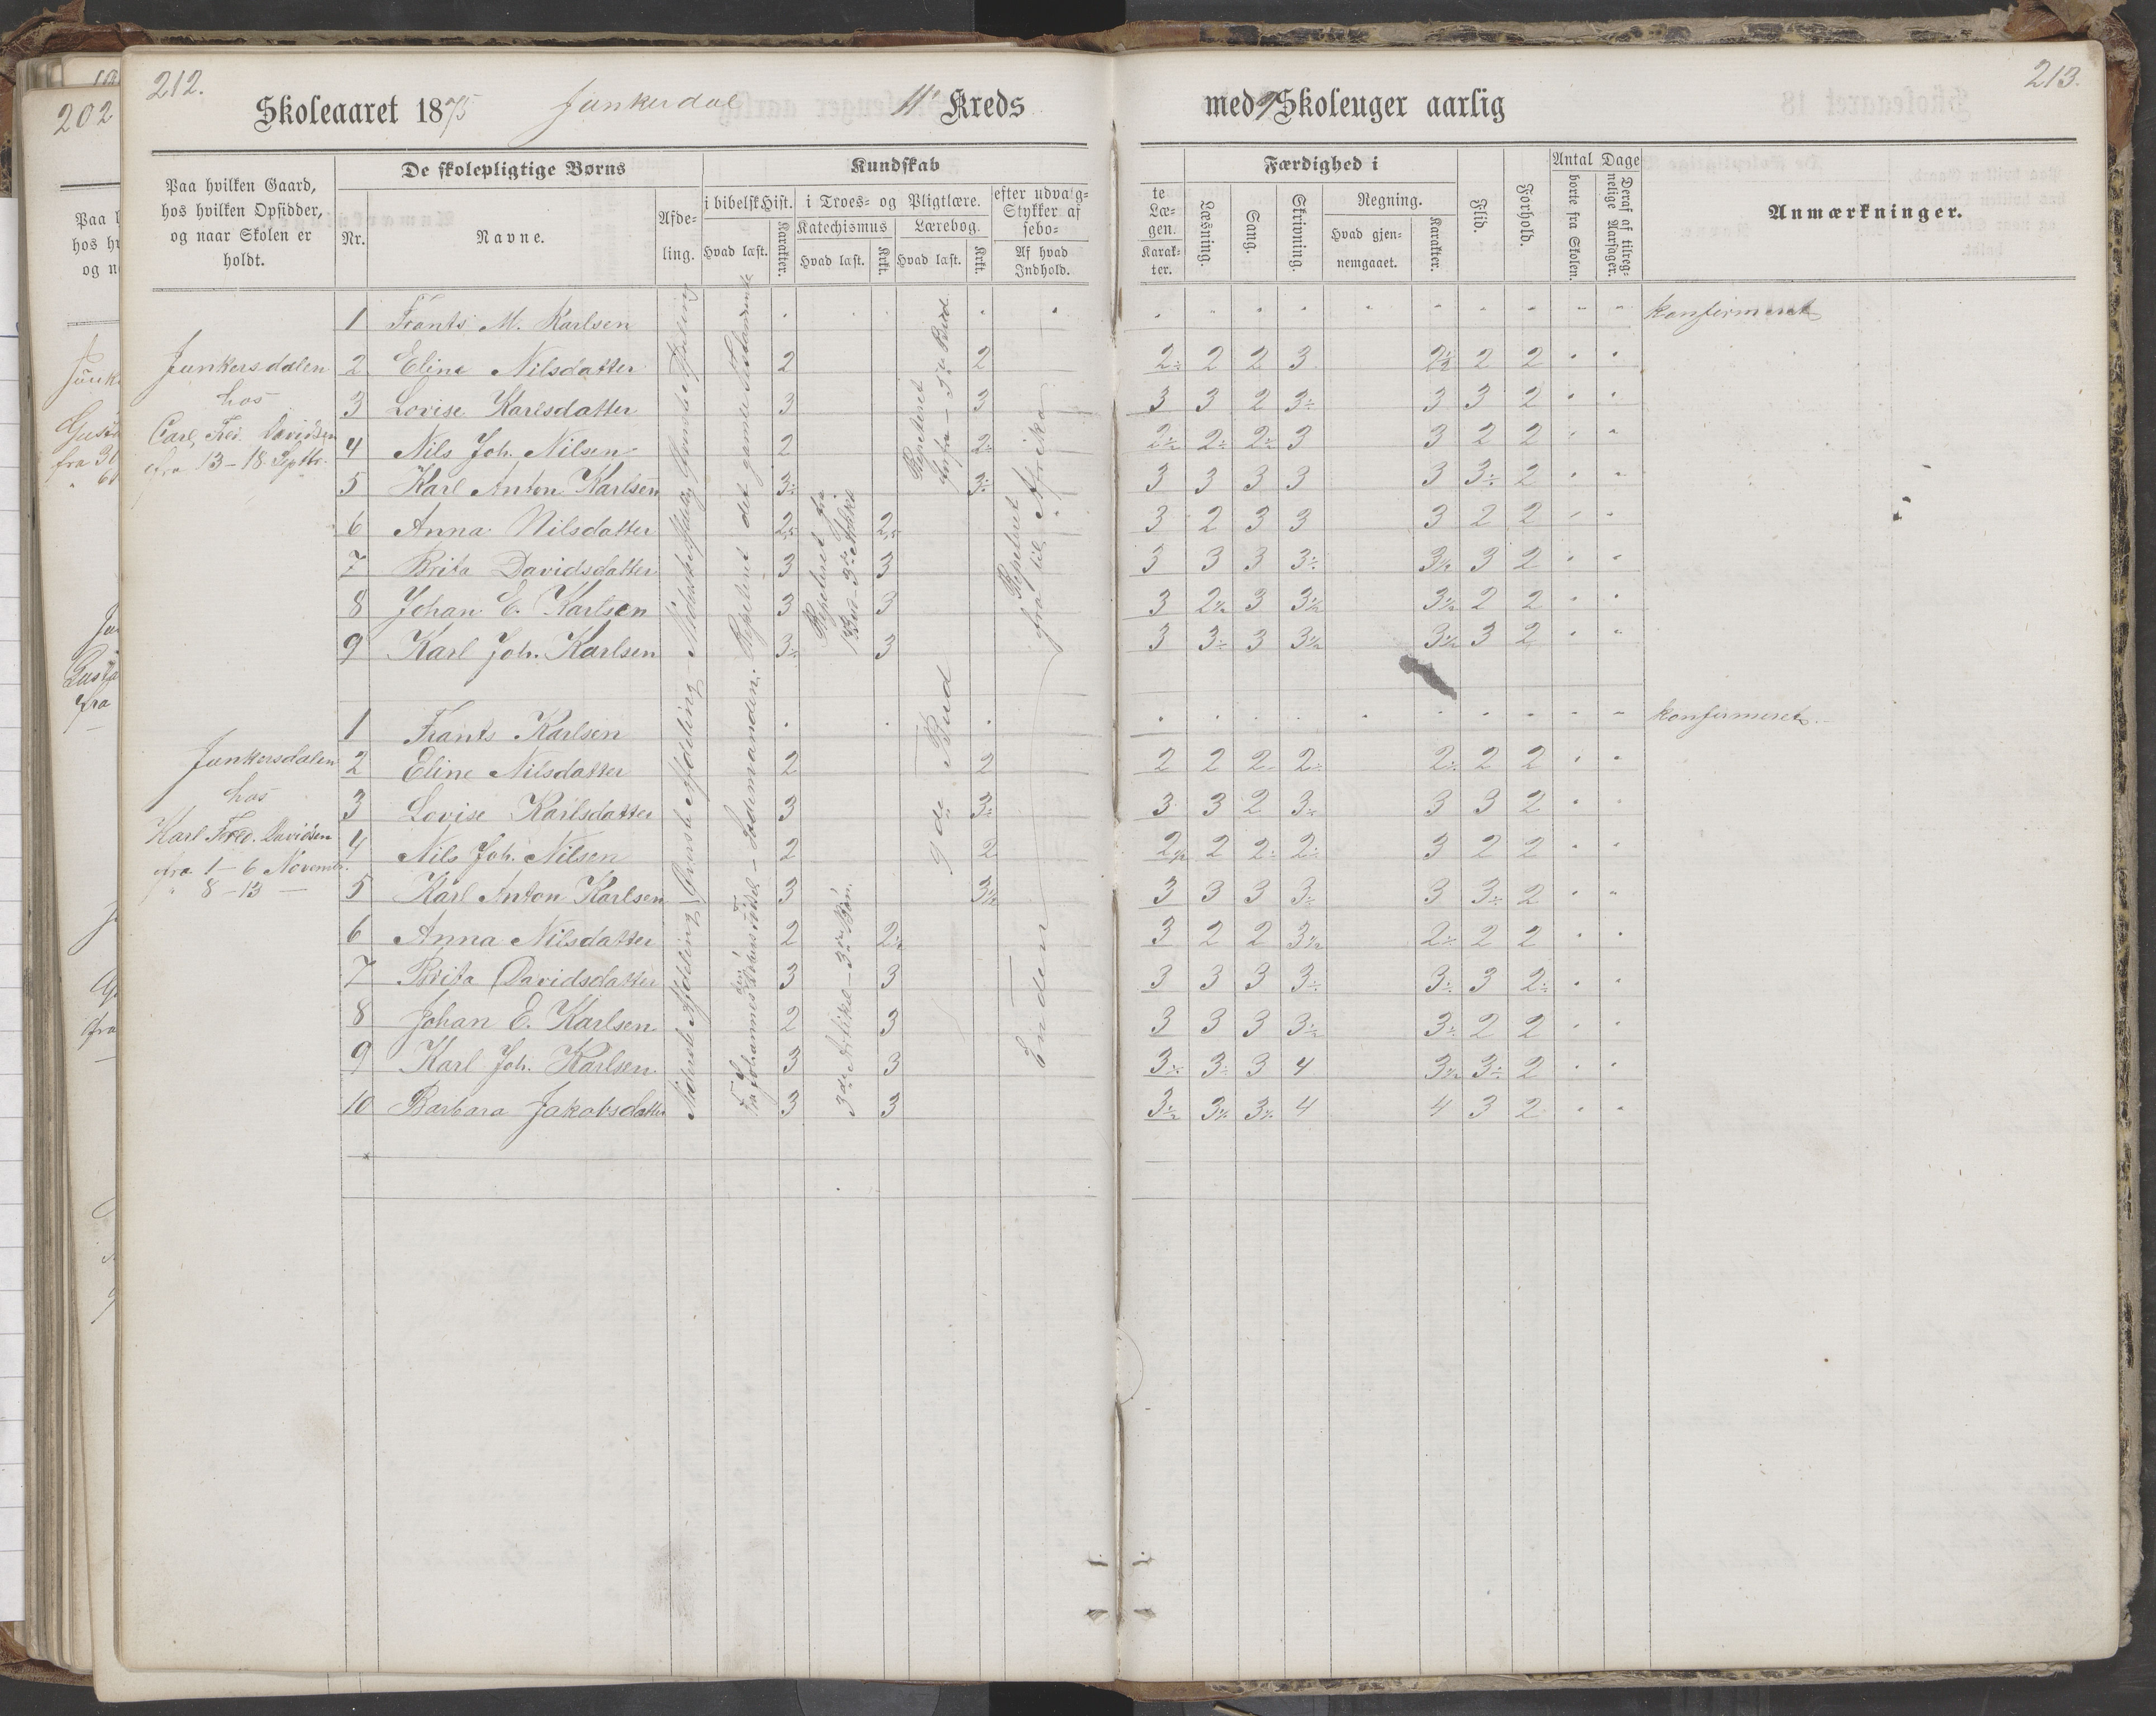 212.
Skoleaaret 1875 Junkerdal 11' Kreds
Paa hvilken Gaard, hos hvilken Opsidder, og naar Skolen er holdt.
De skolepligtige Børns
Nr.
Navne.
Afde-
ling.
Kundskab
i bibelsk Hist.
Hvad læst.
Karakter.
i Troes- og Pligtlære.
Katechismus
Hvad læst.
Krkt.
Lærebog.
Hvad læst.
Krkt.
efter udvalg-
Stykker af
sebo-
Af hvad
Indhold.
Junkersdalen
hos
Carl Fred. Davidsen
fra 13-18 Septbr.
1 Frants M. Karlsen
2 Eline Nilsdatter 2 2
3 Lovise Karlsdatter 3 3
4 Nils Joh. Nilsen 2 2÷
5 Karl Anton Karlsen 3÷ 3÷
6 Anna Nilsdatter 2,5 2,5
7 Brita Davidsdatter 3 3
8 Johan E. Karlsen 3 3
9 Karl Joh. Karlsen 3÷ 3
Nederste Afdeling Øverste Afdeling
Repeteret det gamle Testamente
Repeteret fra
Repeteret
forfra - 5te Bud
Repeteret
fra til Afrika
Junkersdalen
hos
Karl Fred. Davidsen
fra 1-6 Novembr.
" 8-13 —
1 Frants Karlsen
2 Eline Nilsdatter 2 2
3 Lovise Karlsdatter 3 3÷
4 Nils Joh. Nilsen 2 2
5 Karl Anton Karlsen 3 3½
6 Anna Nilsdatter 2 2½
7 Brita Davidsdatter 3 3
8 Johan E. Karlsen 2 3
9 Karl Joh. Karlsen 3 3
10 Barbara Jakobsdatter 3 3
Nederste Afdeling Øverste Afdeling
3die Artikel - 3die Bøn.
9de Bud
Enden
213.
med 9 Skoleuger aarlig
te
Læ-
gen.
Karak-
ter.
Færdighed i
Læsning.
Sang.
Skrivning.
Regning.
Hvad gjen-
nemgaaet.
Karakter.
Flid.
Forhold.
Antal Dage
borte fra Skolen.
Deraf af tilreg-
nelige Aarsager.
Anmærkninger.
" " " " " " " " " " konfirmeret
2÷ 2 2 3 2½ 2 2 " "
3 3 2 3÷ 3 3 2 " "
2½ 2÷ 2½ 3 3 2 2 " "
3 3 3 3 3 3÷ 2 " "
3 2 3 3 3 2 2 " "
3 3 3 3÷ 3½ 3 2 " "
3 2½ 3 3½ 3½ 2 2 " "
3 3÷ 3 3½ 3½ 3 2 " "
" " " " " " " " " " konfirmeret
2 2 2 2÷ 2÷ 2 2 " "
3 3 2 3÷ 3 3 2 " "
2½ 2 2÷ 2÷ 3 2 2 " "
3 3 3 3÷ 3 3÷ 2 " "
3 2 2 3½ 2÷ 2 2 " "
3 3 3 3÷ 3÷ 3 2÷ " "
3 3 3 3½ 3÷ 2 2 " "
3÷ 3÷ 3 4 3½ 3÷ 2 " "
3½ 3½ 3½ 4 4 3 2 " "
202